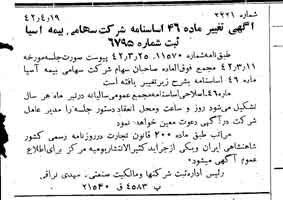 شماره ۳۲۲۱ ۴۲ر۴ر۱۹
آگهی تغییر ماده ۴۶ اساسنامه شرکت سهامی بیمه آسیا
ثبت شماره ۶۷۹۵
طبق نامه شماره ۱۱۵۷۰ر۲۵ر۳ر۴۲ پیوست صورت جلسه مورخه
۱۱ر۳ر۴۲ مجمع فوق‌العاده صاحبان سهام شرکت سهامی بیمه آسیا
ماده ۴۶ اساسنامه بشرح زیر تغییر یافته است
ماده ۴۶ اصلاحی اساسنامه مجمع عمومی سالیانه در تیر ماه هر سال
تشکیل می‌شود روز و ساعت و محل انعقاد و دستور جلسه را مدیر عامل
شرکت در آگهی دعوت معین خواهد نمود
مراتب طبق ماده ۲۰۰ قانون تجارت در روزنامه رسمی کشور
شاهنشاهی ایران و یکی از جراید کثیرالانتشار یومیه مرکز برای اطلاع
عموم آگهی میشود
رئیس اداره ثبت شرکتها و مالکیت صنعتی ـ مهدی نراقی
پ ۴۵۸۳ ق ۲۱۵۴۰